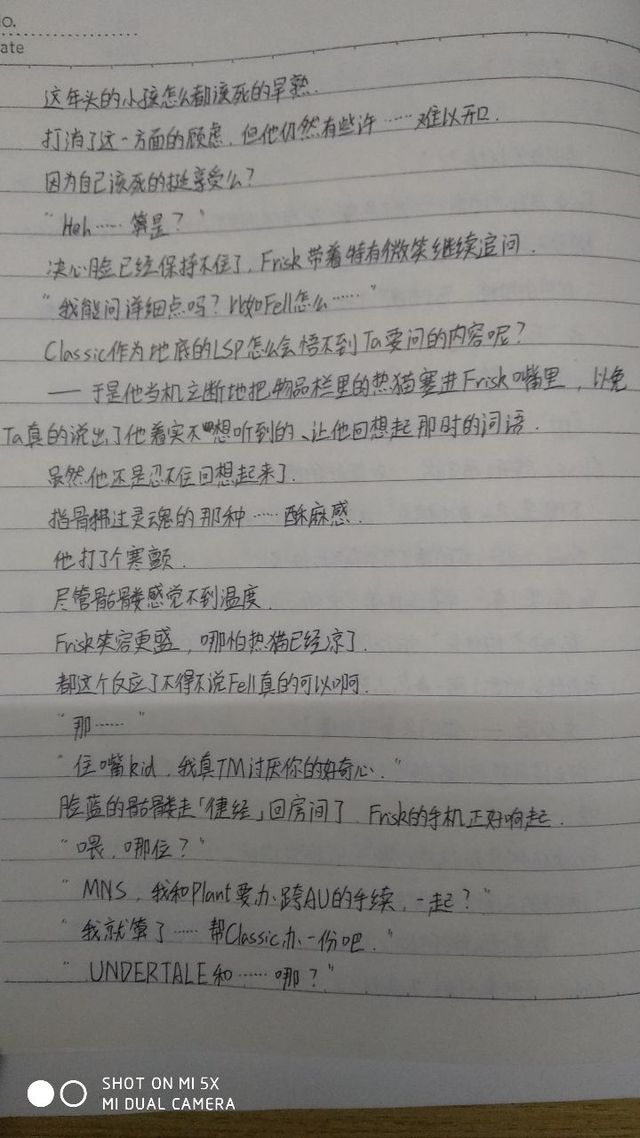 No.
ate
这年头的小孩怎么都该死的早熟.
打消了这一方面的顾虑,但他仍然有些许……难以开口.
因为自己该死的挺享受么?
“Heh……算是?”
决心脸已经保持不住了,Frisk带着特有微笑继续追问.
“我能问详细点吗?比如Fell怎么……”
Classic作为地底的LSP怎么会悟不到Ta要问的内容呢?
——于是他当机立断地把物品栏里的热猫塞进Frisk嘴里,以免
Ta真的说出了他着实不想听到的、让他回想起那时的词语.
虽然他还是忍不住回想起来了.
指骨拂过灵魂的那种……酥麻感.
他打了个寒颤.
尽管骷髅感觉不到温度.
Frisk笑容更盛,哪怕热猫已经凉了.
都这个反应了不得不说Fell真的可以啊.
“那……”
“住嘴kid,我真TM讨厌你的好奇心.”
脸蓝的骷髅走「便径」回房间了.Frisk的手机正好响起.
“喂,哪位?”
“MNS,我和Plant要办跨AU的手续,一起?”
“我就算了……帮Classic办一份吧.”
“UNDERTALE和……哪?”
SHOT ON MI 5X
MI DUAL CAMERA